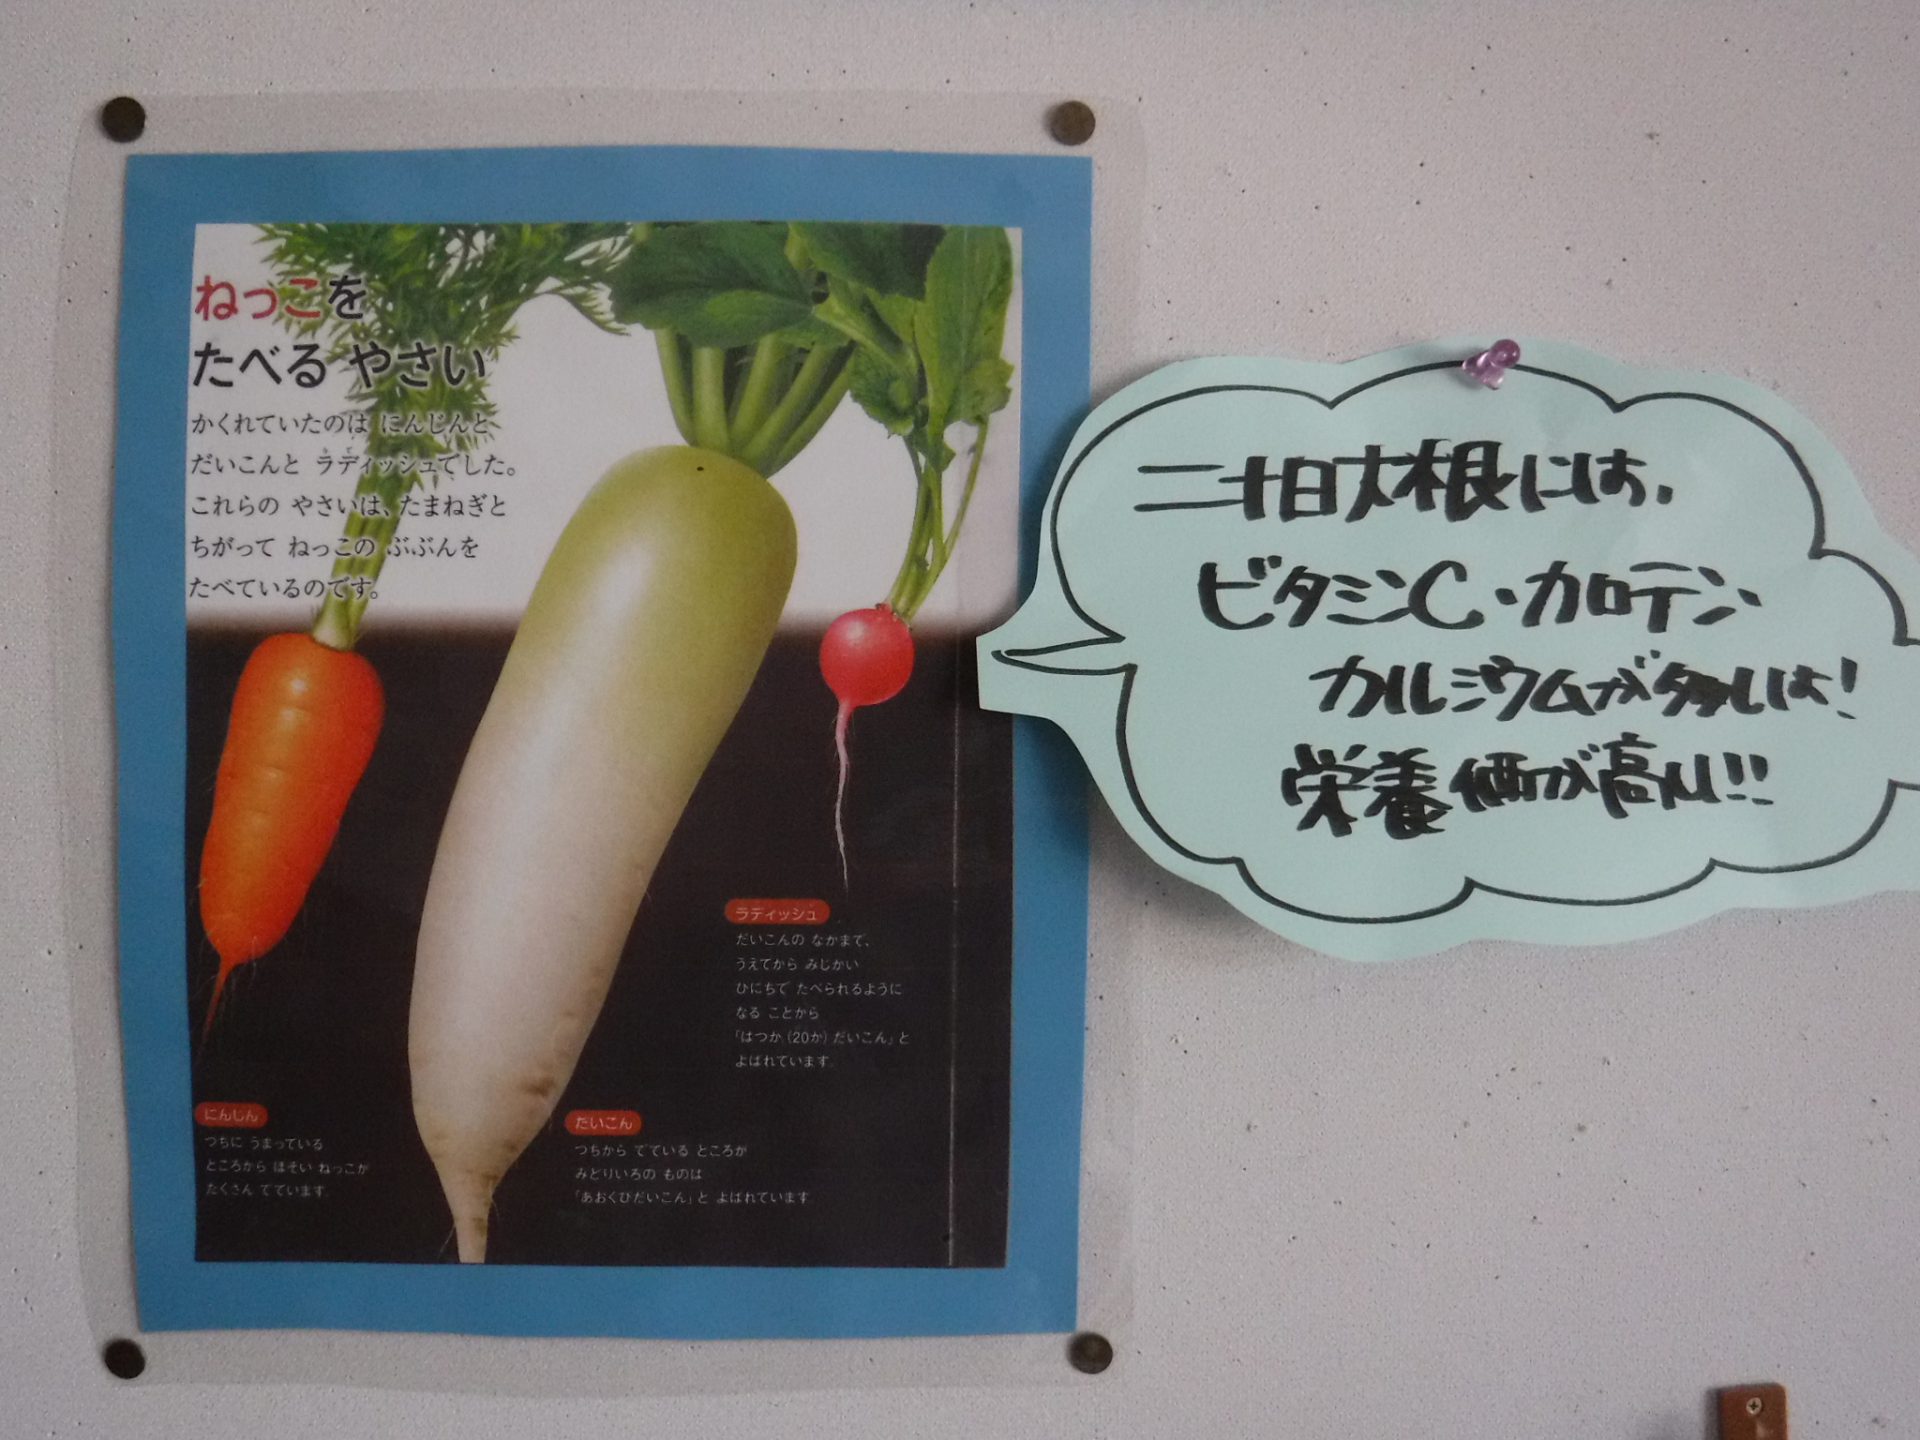 ねっこを
たべる やさい
かくれていたのは にんじんと
だいこんと ラディッシュでした。
これらの やさいは、たまねぎと
ちがって ねっこの ぶぶんを
たべているのです。
ラディッシュ
だいこんの なかまで、
うえてから みじかい
ひにちで たべられるように
なる ことから
「はつか(20か)だいこん」と
よばれています。
にんじん
つちに うまっている
ところから ほそい ねっこが
たくさん でています。
だいこん
つちから でている ところが
みどりいろの ものは
「あおくびだいこん」と よばれています。
二十日大根には、
ビタミンC・カロテン・
カルシウムが多いよ!
栄養価が高い!!